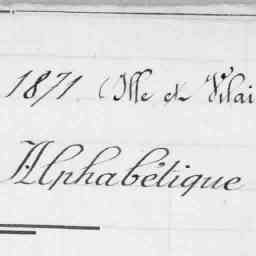 1871 Ille et Vilai
Alphabétique